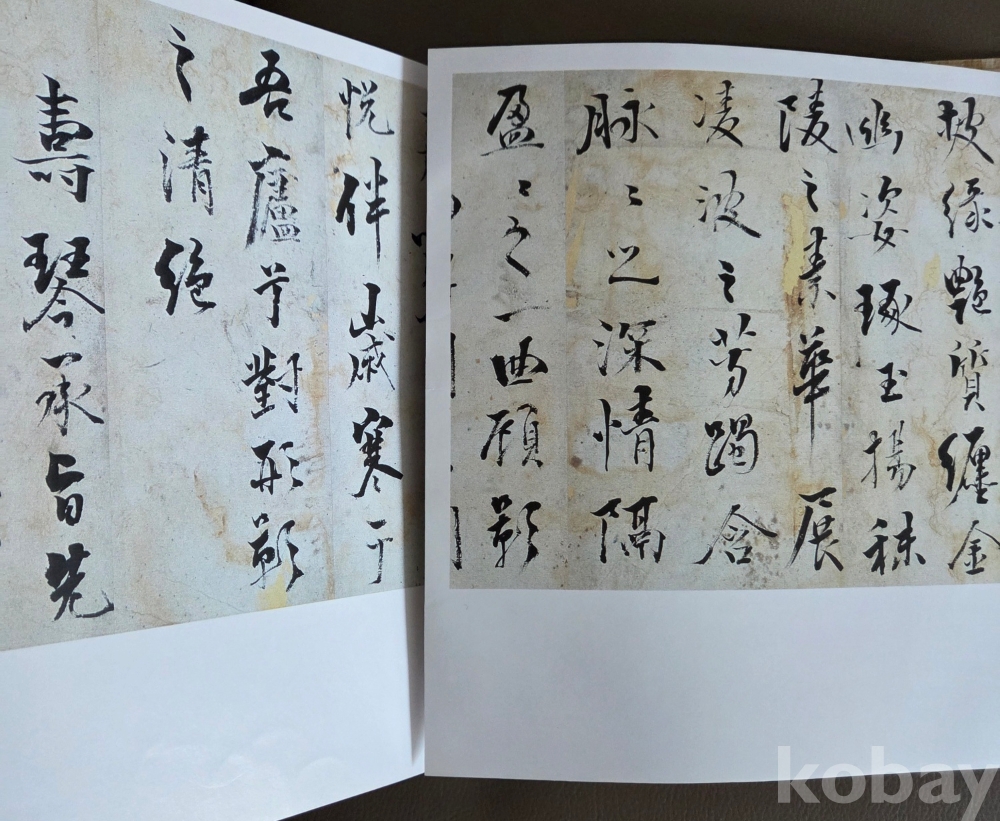 披緣艶質纏金
幽姿琢玉揚秣
陵之素華展
凌波之芳躅含
脉〻之深情隔
盈〻之一顧影
悅伴歲寒于
吾廬兮對形影
之清絶
壽琴承旨先
kobay